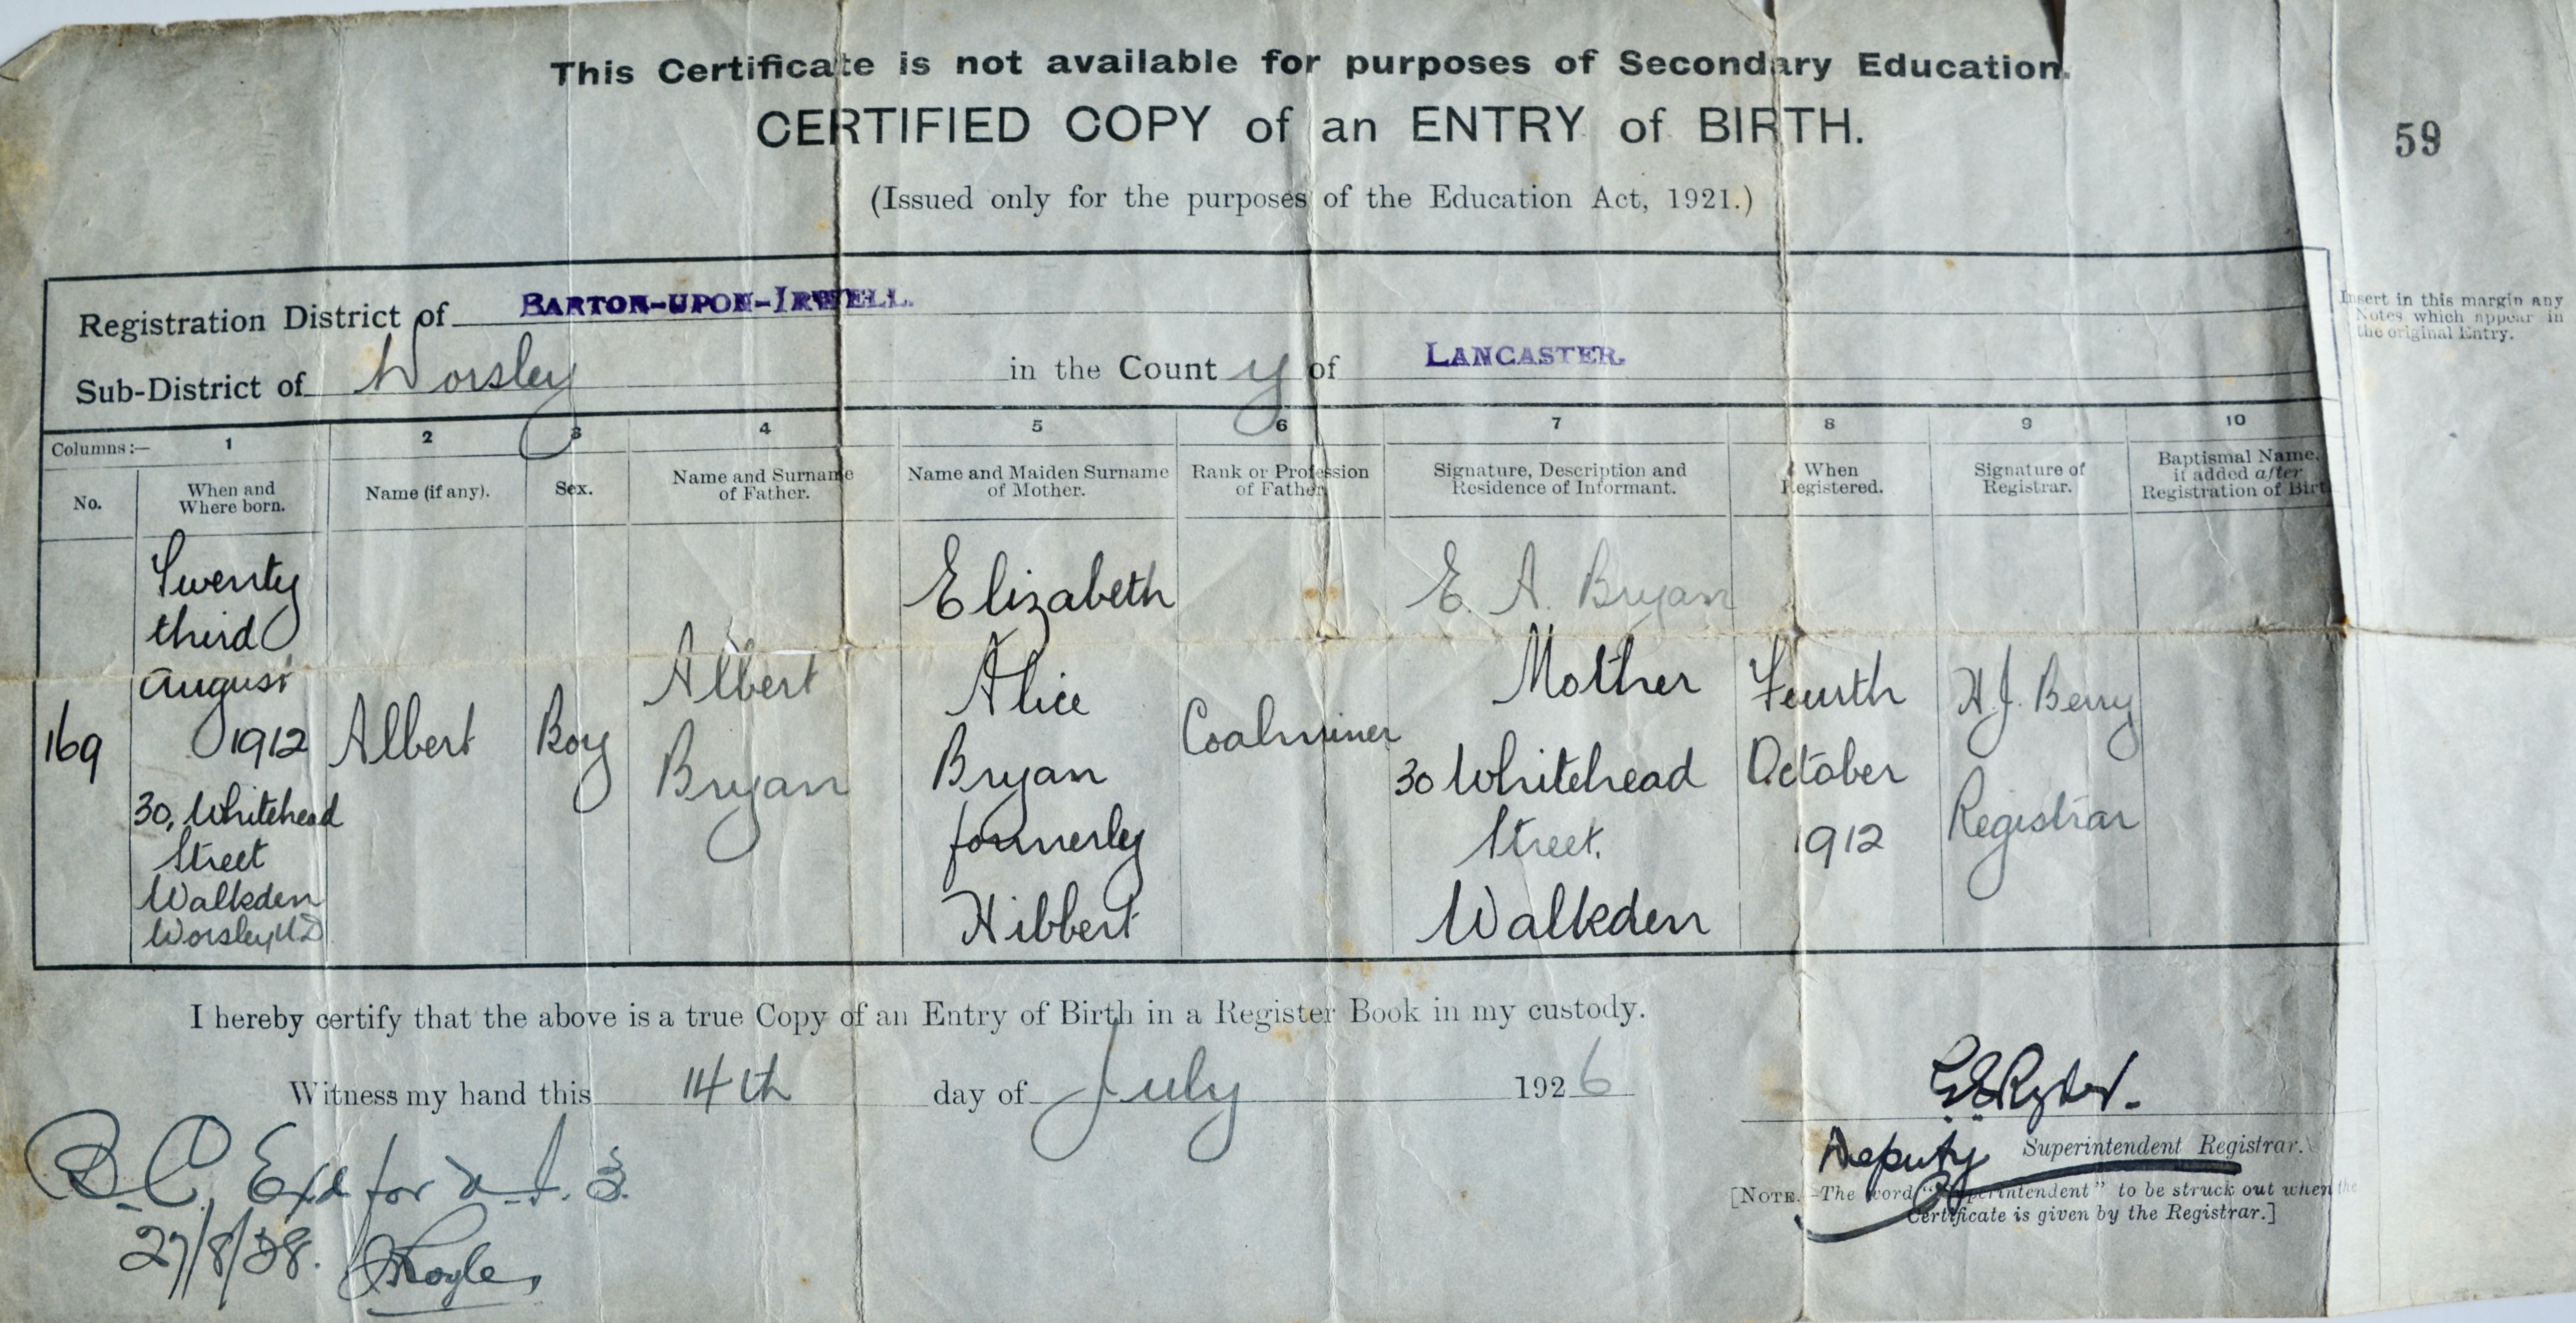 This Certificate is not available for purposes of Secondary Education.
CERTIFIED COPY of an ENTRY of BIRTH.
59
(Issued only for the purposes of the Education Act, 1921.)
Registration District of BARTON-UPON-IRWELL.
Insert in this margin any
Notes which appear in
the original Entry.
Sub-District of Worsley in the County of LANCASTER.
Columns:— 1 2 3 4 5 6 7 8 9 10
No.
When and
Where born.
Name (if any).
Sex.
Name and Surname
of Father.
Name and Maiden Surname
of Mother.
Rank or Profession
of Father.
Signature, Description and
Residence of Informant.
When
Registered.
Signature of
Registrar.
Baptismal Name,
if added after
Registration of Birt
169
Twenty
third
August
1912
30, Whitehead
Street
Walkden
Worsley U.D
Albert
Boy
Albert
Bryan
Elizabeth
Alice
Bryan
formerly
Hibbert
Coalminer
E. A. Bryan
Mother
30 Whitehead
Street.
Walkden
Fourth
October
1912
H.J. Berry
Registrar
I hereby certify that the above is a true Copy of an Entry of Birth in a Register Book in my custody.
Witness my hand this 14th day of July 1926
Deputy Superintendent Registrar.
[NOTE.—The word "Superintendent" to be struck out when the
Certificate is given by the Registrar.]
B.C. Exd for
27/8/38.